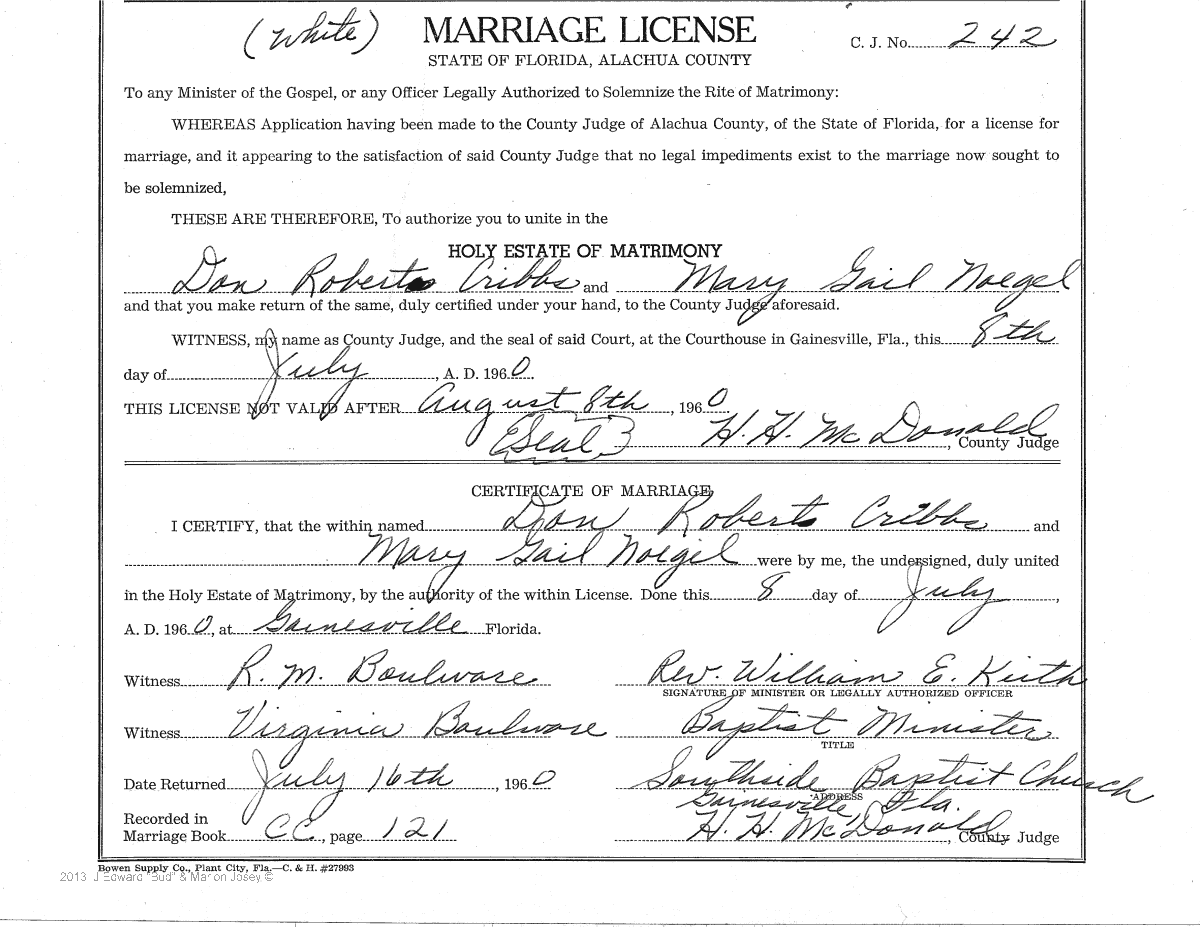 (White) MARRIAGE LICENSE C. J. No. 242
STATE OF FLORIDA, ALACHUA COUNTY
To any Minister of the Gospel, or any Officer Legally Authorized to Solemnize the Rite of Matrimony:
WHEREAS Application having been made to the County Judge of Alachua County, of the State of Florida, for a license for
marriage, and it appearing to the satisfaction of said County Judge that no legal impediments exist to the marriage now sought to
be solemnized,
THESE ARE THEREFORE, To authorize you to unite in the
HOLY ESTATE OF MATRIMONY
Don Roberts Cribbs and Mary Gail Noegel
and that you make return of the same, duly certified under your hand, to the County Judge aforesaid.
WITNESS, my name as County Judge, and the seal of said Court, at the Courthouse in Gainesville, Fla., this 8th
day of July, A. D. 1960
THIS LICENSE NOT VALID AFTER August 8th, 1960
(Seal) H. H. McDonald, County Judge
CERTIFICATE OF MARRIAGE
I CERTIFY, that the within named Don Roberts Cribbs and
Mary Gail Noegel were by me, the undersigned, duly united
in the Holy Estate of Matrimony, by the authority of the within License. Done this 8 day of July,
A. D. 1960, at Gainesville Florida.
Witness R. M. Boulware Rev. William E. Keith
SIGNATURE OF MINISTER OR LEGALLY AUTHORIZED OFFICER
Witness Virginia Boulware Baptist Minister
TITLE
Date Returned July 16th, 1960 Southside Baptist Church
ADDRESS
Gainesville, Fla.
Recorded in
Marriage Book CC, page 121 H. H. McDonald, County Judge
Bowen Supply Co., Plant City, Fla.—C. & H. #27993
2013 J Edward "Bud" & Marion Josey ©